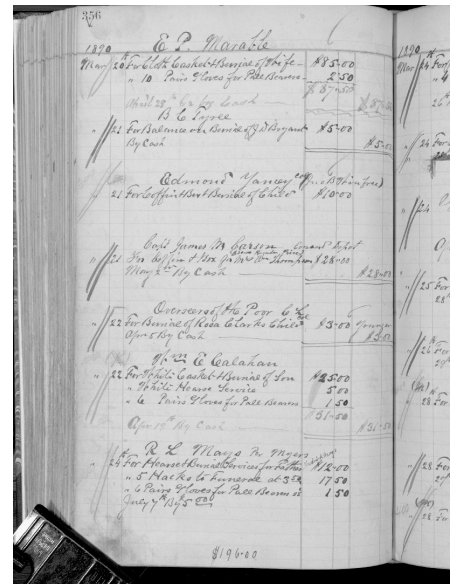 356
1890 E. P. Marable
Mar 20 For Cloth Casket & Burial of Wife - $85.00
" 10 Pairs Gloves for Pall Bearers - 2.50
$87.50
April 28th By Cash $87.50
B L Tyree
" 21 For Balance on Burial of J D Bryant $5.00
By Cash $5.00
Edmond Yancey
21 For Coffin & Burial of Child $10.00
Capt James W Carson
" 21 For Coffin & Box for Mrs Thompson $28.00
May 2nd By Cash $28.00
Overseers of the Poor
" 22 For Burial of Rosa Clarks Child $3.00
Apr 5 By Cash $3.00
E Calahan
" 22 For White Casket & Burial of Son $25.00
" White Hearse Service 5.00
" 6 Pairs Gloves for Pall Bearers 1.50
$31.50
Apr 19th By Cash $31.50
R L Mays
" 24 For Hearse & Burial Services for Father $12.00
" 5 Hacks to Funeral at 3.50 17.50
" 6 Pairs Gloves for Pall Bearers 1.50
July 7th By 5.00
$196.00
1890